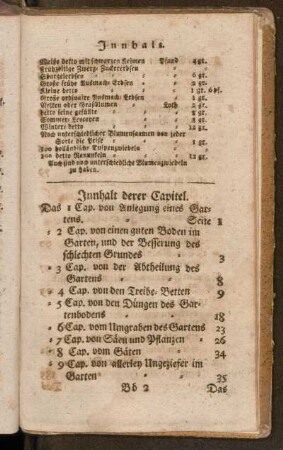 Innhals.
Weisse detto mit schwarzen Keimen Pfund 4 gr.
Frühzeitige Zwerg-Zuckererbsen
Spargelerbsen 6 gr.
Grosse frühe Ausmach-Erbsen 2 gr.
Kleine detto 1 gr. 6 pf.
Grosse ordinaire Ausmach-Erbsen 1 gr.
Nelken oder Grasblumen Loth 2 gr.
detto feine gefüllte 4 gr.
Sommer-Levcojen 8 gr.
Winter detto 12 gr.
Noch unterschiedlicher Blumensaamen von jeder
Sorte die Prise 1 gr.
100 holländische Tulpenzwiebeln
100 detto Ranunkeln 12 gr.
Auch sind noch unterschiedliche Blumenzwiebeln
zu haben.
Innhalt derer Capitel.
Das 1 Cap. von Anlegung eines Gar-
tens. Seite 1
2 Cap. von einen guten Boden im
Garten, und der Besserung des
schlechten Grundes 3
3 Cap. von der Abtheilung des
Gartens 8
4 Cap. von den Treibe-Betten 9
5 Cap. von den Düngen des Gar-
tenbodens 18
6 Cap. vom Umgraben des Gartens 23
7 Cap. von Säen und Pflanzen 26
8 Cap. vom Gäten 34
9 Cap. von allerley Ungeziefer im
Garten 35
Bb 2 Das